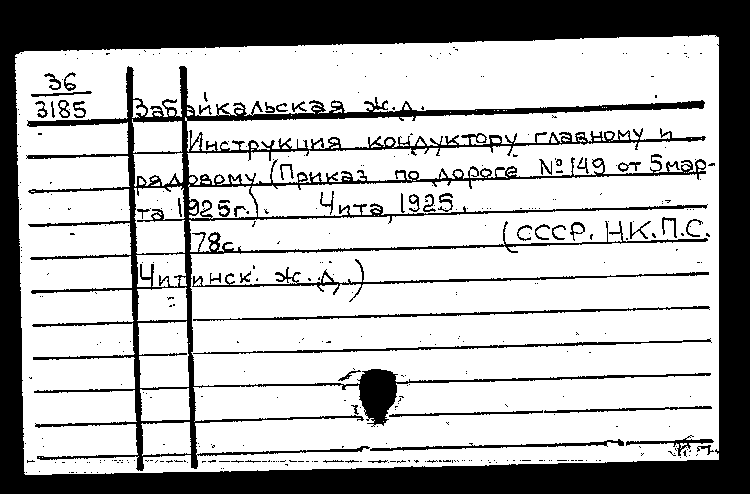 36
3185 Забайкальская ж.д.
Инструкция кондуктору главному и
рядовому. (Приказ по дороге № 149 от 5 мар-
та 1925 г.). Чита, 1925.
78 с. (СССР. Н.К.П.С.
Читинск. ж.д.)